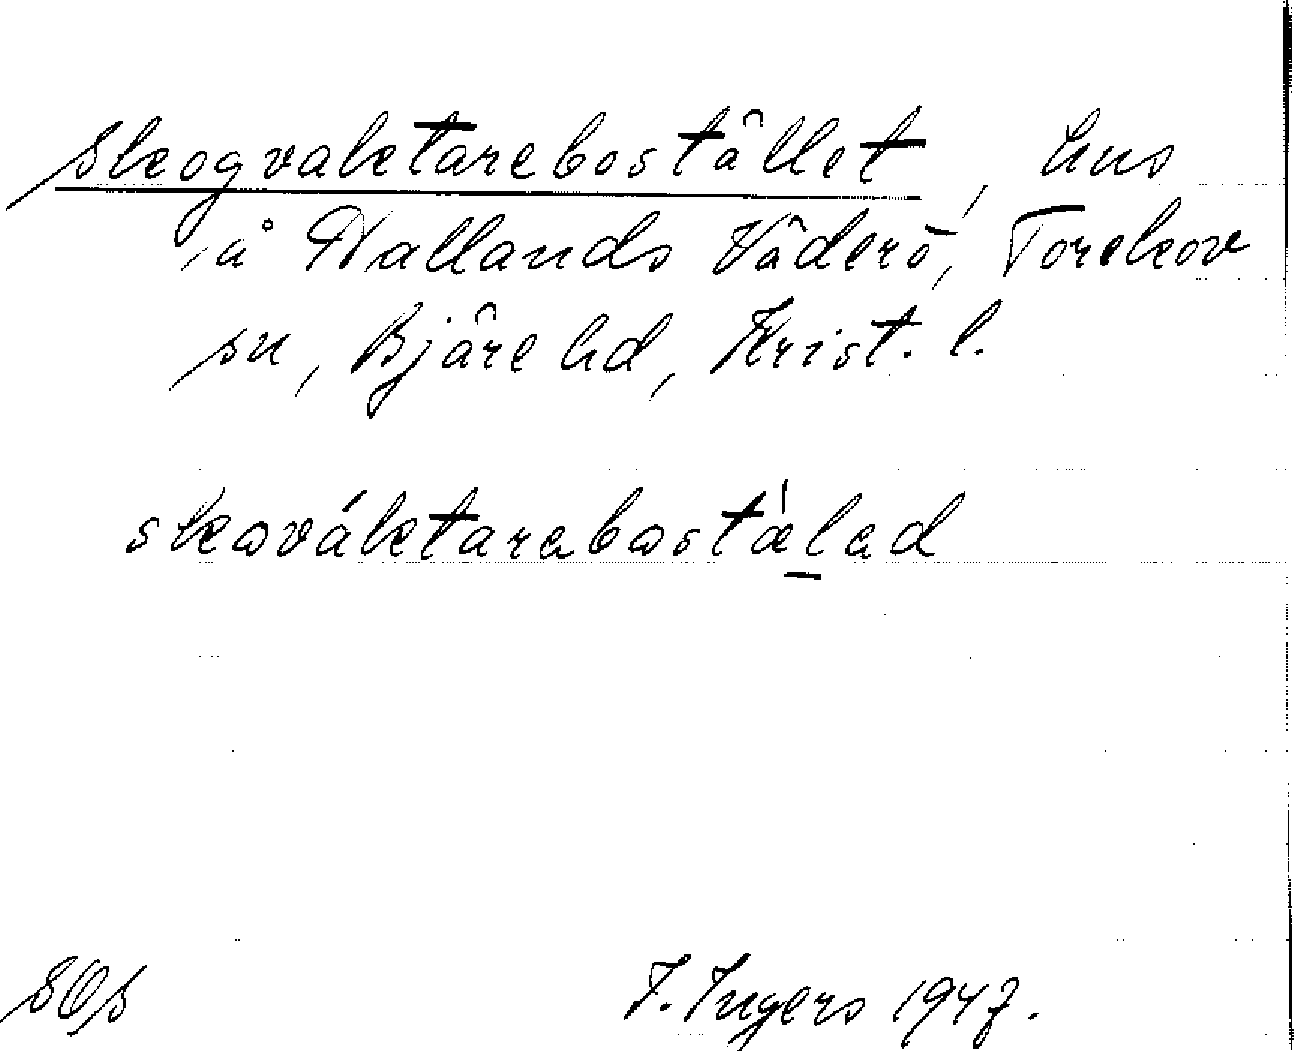 Skogvaktarebostället, hus
å Hallands Väderö, Torekov
sn, Bjäre hd, Krist. l.
skωváktarabωstǽlad
I. Ingers 1947.